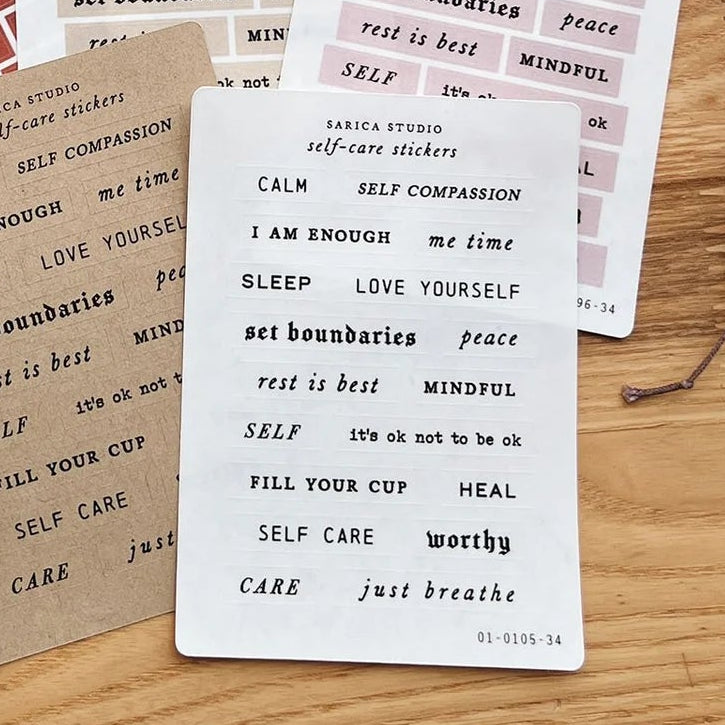 set boundaries
rest is best MIN
ok not
boundaries peace
rest is best MINDFUL
SELF it's ok
ok
L
96-34
SARICA STUDIO
lf-care stickers
SELF COMPASSION
NOUGH me time
LOVE YOURSEL
oundaries pea
st is best MIND
LF it's ok not t
ILL YOUR CUP
SELF CARE
CARE just
SARICA STUDIO
self-care stickers
CALM SELF COMPASSION
I AM ENOUGH me time
SLEEP LOVE YOURSELF
set boundaries peace
rest is best MINDFUL
SELF it's ok not to be ok
FILL YOUR CUP HEAL
SELF CARE worthy
CARE just breathe
01-0105-34